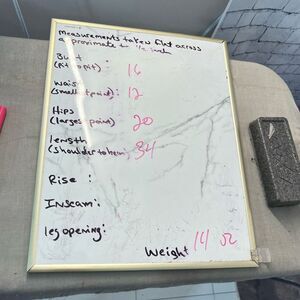 measurements taken flat across
approximate to 1/2 inch
Bust : 16
(Pit to pit)
Waist : 12
(smallest point)
Hips : 20
(largest point)
length : 34
(shoulder to hem)
Rise :
Inseam :
leg opening :
Weight 14 oz